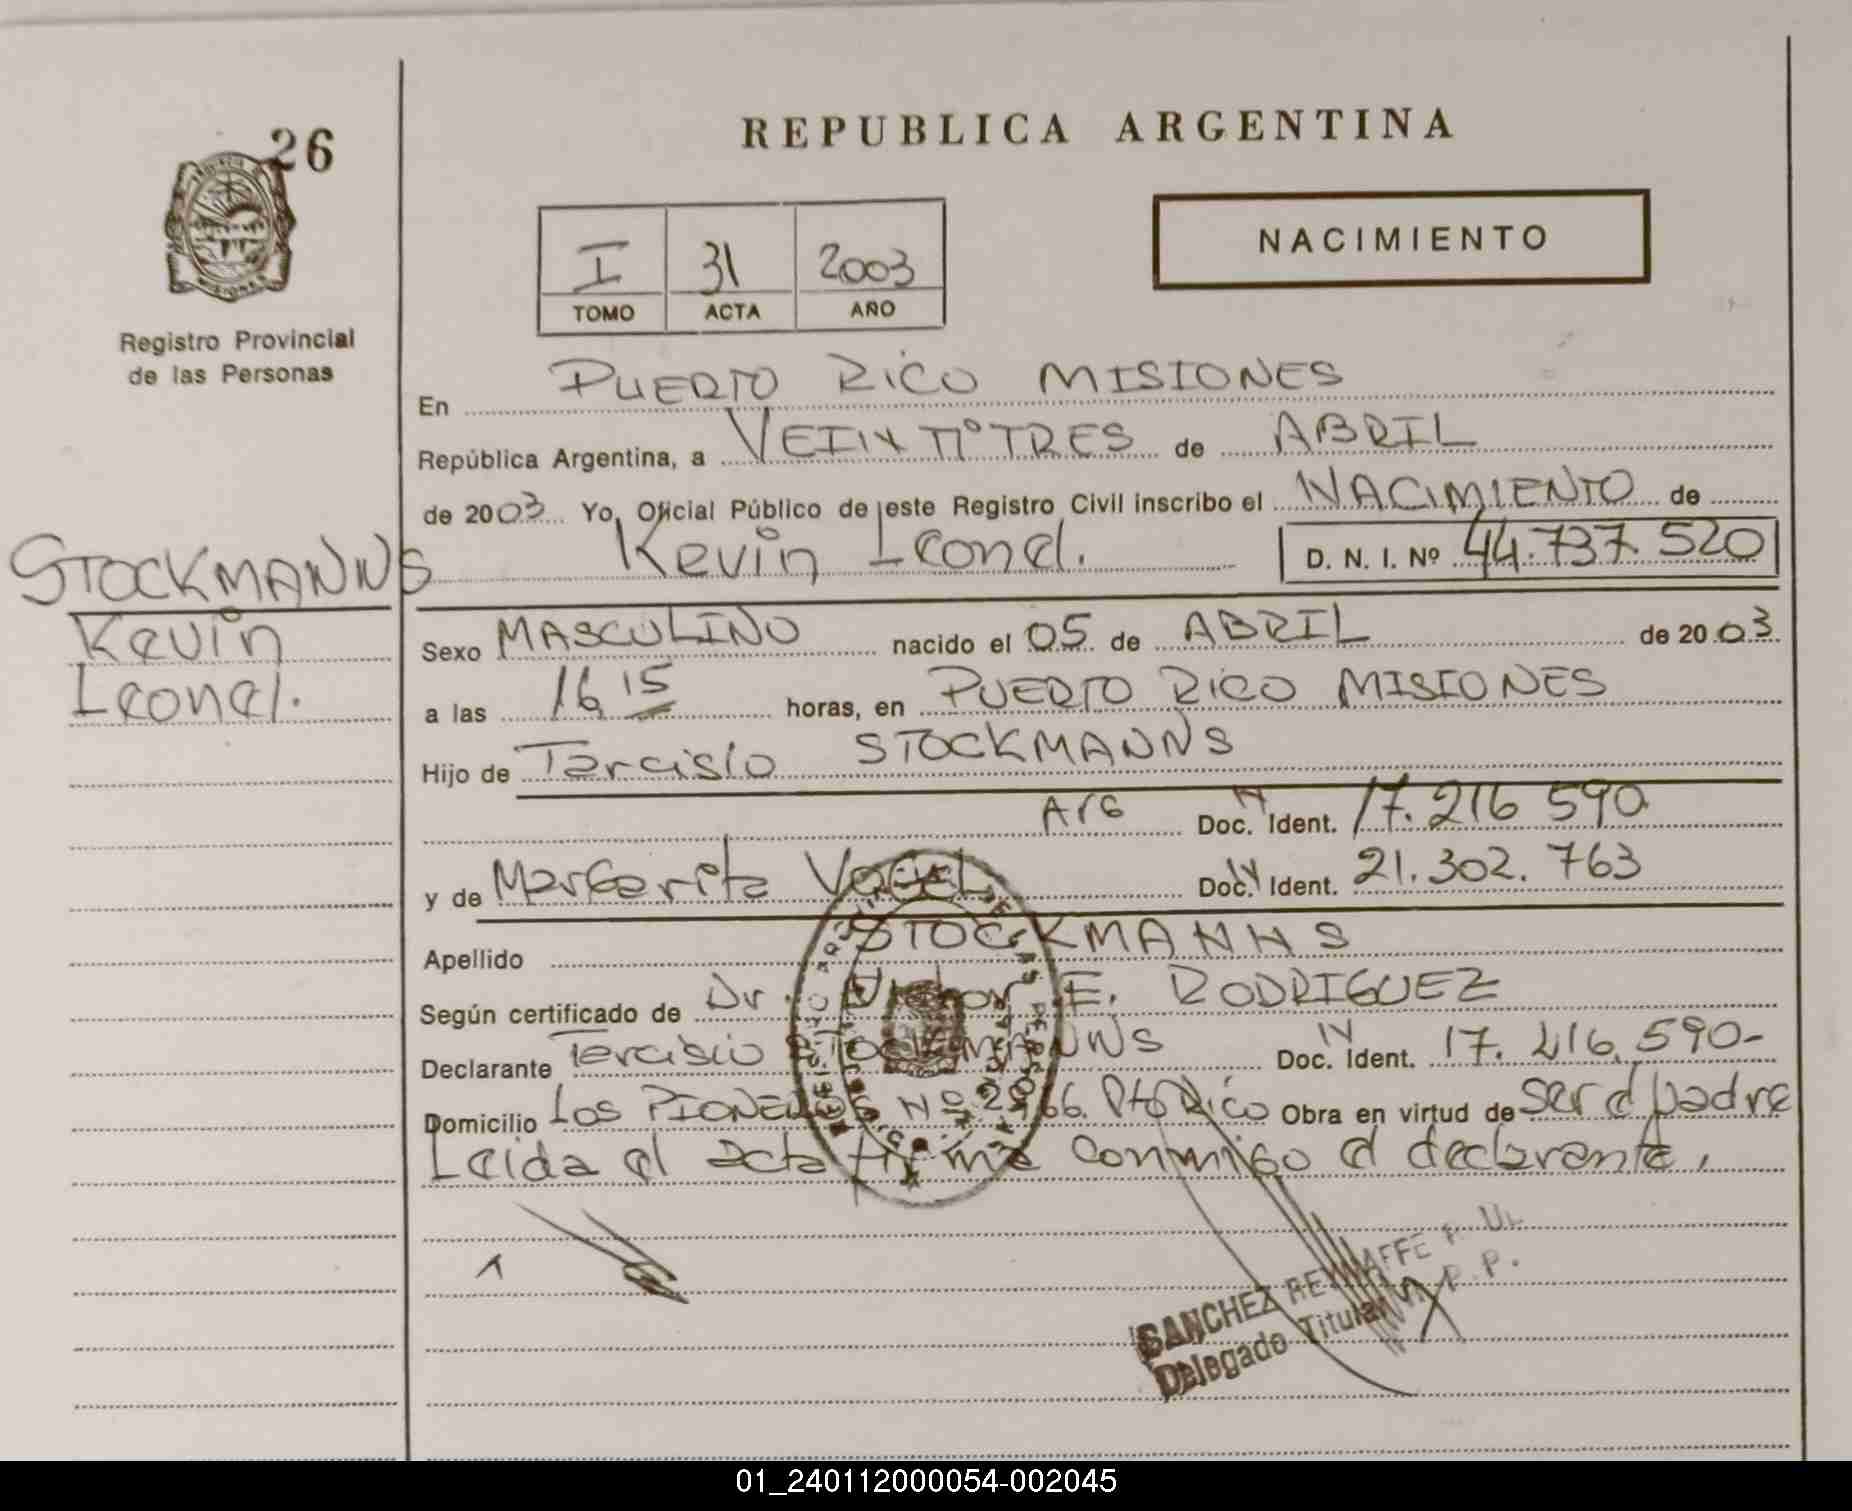 26
REPUBLICA ARGENTINA
NACIMIENTO
I 31 2003
TOMO ACTA AÑO
Registro Provincial
de las Personas
En PUERTO RICO MISIONES
República Argentina, a VEINTITRES de ABRIL
de 2003 Yo, Oficial Público de este Registro Civil inscribo el NACIMIENTO de
Kevin Leonel. D. N. I. Nº 44.737.520
STOCKMANNS
Kevin
Leonel.
Sexo MASCULINO nacido el 05 de ABRIL de 2003
a las 16,15 horas, en PUERTO RICO MISIONES
Hijo de Tarcisio STOCKMANNS
Arg Doc. Ident. 17.216 590
y de Margarita VOGEL Doc. Ident. 21.302.763
Apellido STOCKMANNS
Según certificado de Dr. E. RODRIGUEZ
Declarante Tercisio STOCKMANNS Doc. Ident. 17.216.590-
Domicilio Los PIONEROS Nº 2966. Pto Rico Obra en virtud de ser el padre
Leida el acta firma conmigo el declarante,
SANCHEZ
Delegado Titular
MISIONES
01_240112000054-002045